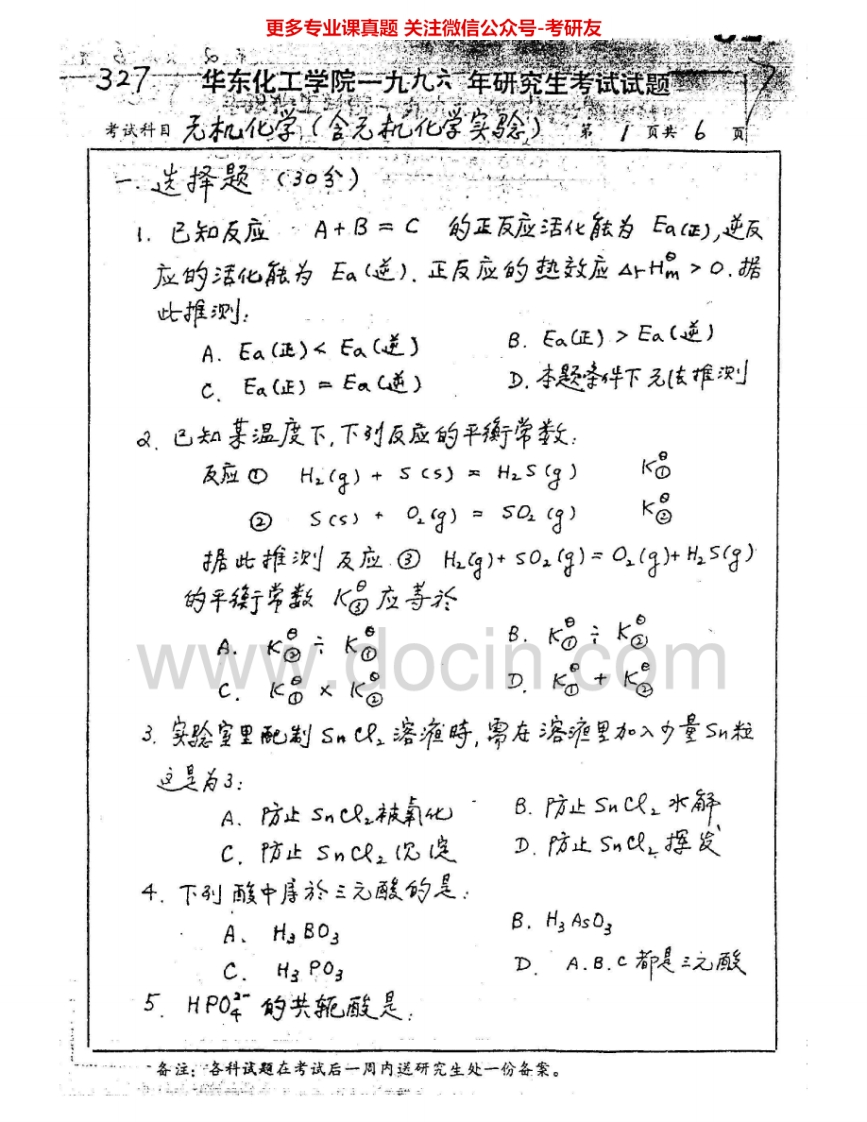 更多专业课真题 关注微信公众号-考研友
327 华东化工学院一九九六年研究生考试试题
考试科目 无机化学(含无机化学实验) 第 1 页共 6 页
一. 选择题 (30分)
1. 已知反应 A + B = C 的正反应活化能为 Ea(正),逆反
应的活化能为 Ea(逆). 正反应的热效应 ΔrHm^⊖ > O. 据
此推测:
A. Ea(正) < Ea(逆) B. Ea(正) > Ea(逆)
C. Ea(正) = Ea(逆) D. 本题条件下无法推测
2. 已知某温度下,下列反应的平衡常数:
反应① H₂(g) + S(s) = H₂S(g) K^⊖①
② S(s) + O₂(g) = SO₂(g) K^⊖②
据此推测反应③ H₂(g) + SO₂(g) = O₂(g) + H₂S(g)
的平衡常数 K^⊖③ 应等於
A. K^⊖② ÷ K^⊖① B. K^⊖① ÷ K^⊖②
C. K^⊖① × K^⊖② D. K^⊖① + K^⊖②
www.docin.com
3. 实验室里配制 SnCl₂ 溶液時,需在溶液里加入少量Sn粒
这是为了:
A. 防止 SnCl₂被氧化 B. 防止 SnCl₂ 水解
C. 防止 SnCl₂ 沉淀 D. 防止 SnCl₂ 挥发
4. 下列酸中属於三元酸的是:
A. H₃BO₃ B. H₃AsO₃
C. H₃PO₃ D. A.B.C都是三元酸
5. HPO₄²⁻ 的共轭酸是:
备注: 各科试题在考试后一周内送研究生处一份备案。